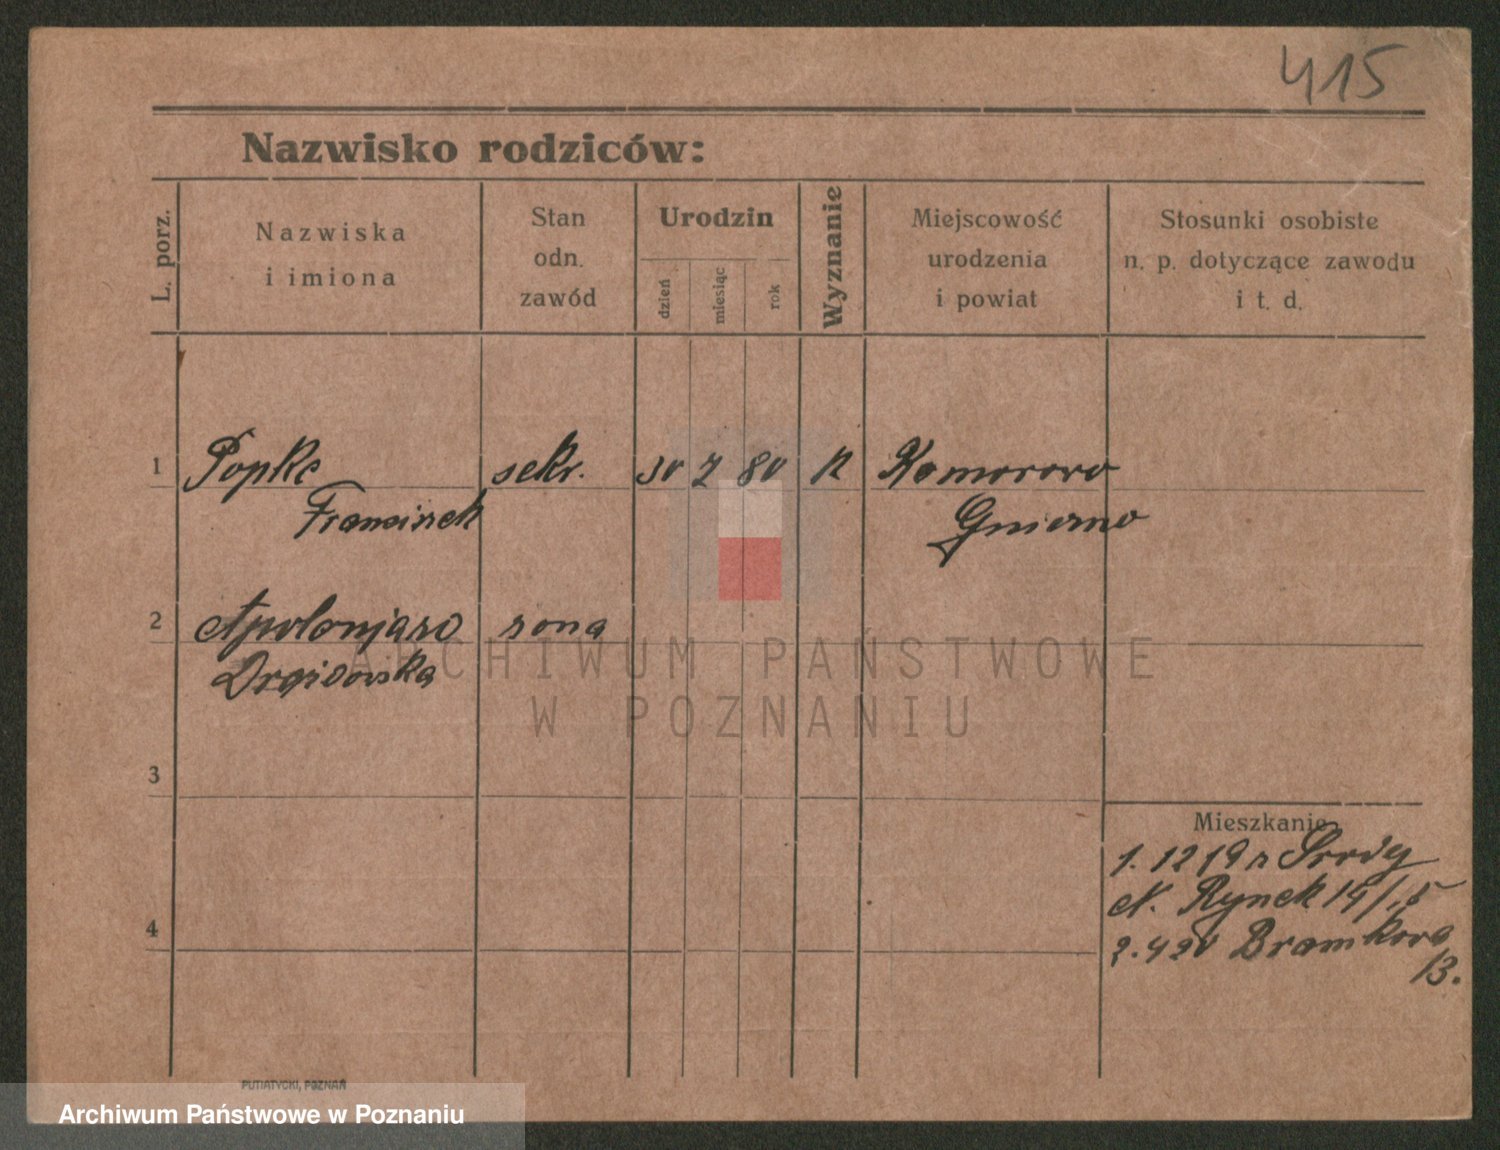 415
Nazwisko rodziców:
L. porz.
Nazwiska
i imiona
Stan
odn.
zawód
Urodzin
dzień
miesiąc
rok
Wyznanie
Miejscowość
urodzenia
i powiat
Stosunki osobiste
n. p. dotyczące zawodu
i t. d.
1 Popke sekr. 30 7 80 K Komorowo
Franciszek Gniezno
2 Apolonja zona
3
Mieszkanie
1. 12 19 z Środy
N. Rynek 14/15
4
2. 4 20 Bramkowa
13.
ARCHIWUM PAŃSTWOWE
W POZNANIU
PUTIATYCKI, POZNAŃ
Archiwum Państwowe w Poznaniu